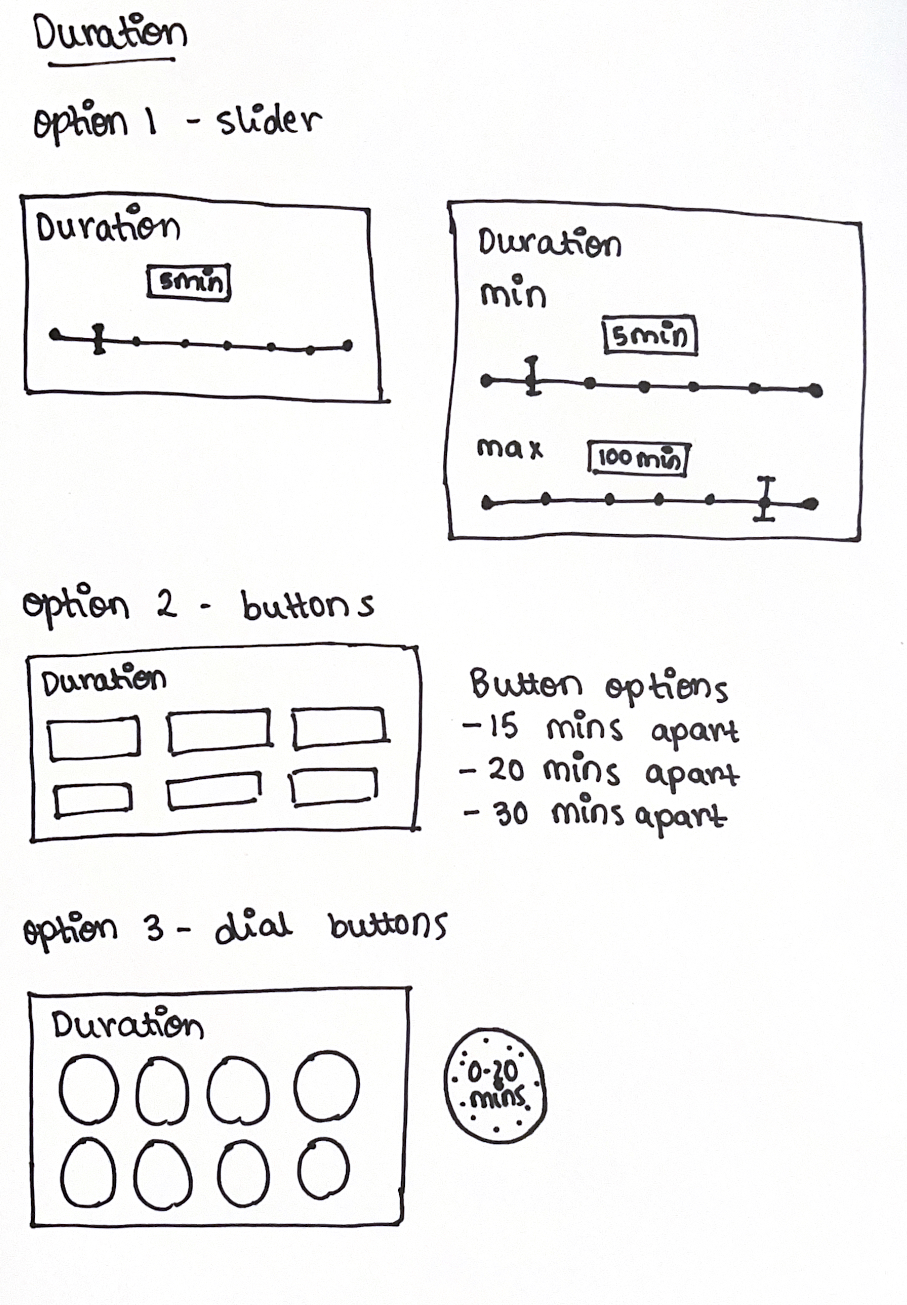 Duration
option 1 - slider
Duration
5min
Duration
min
5min
max
100min
option 2 - buttons
Duration
Button options
-15 mins apart
-20 mins apart
-30 mins apart
option 3 - dial buttons
Duration
0-20
mins